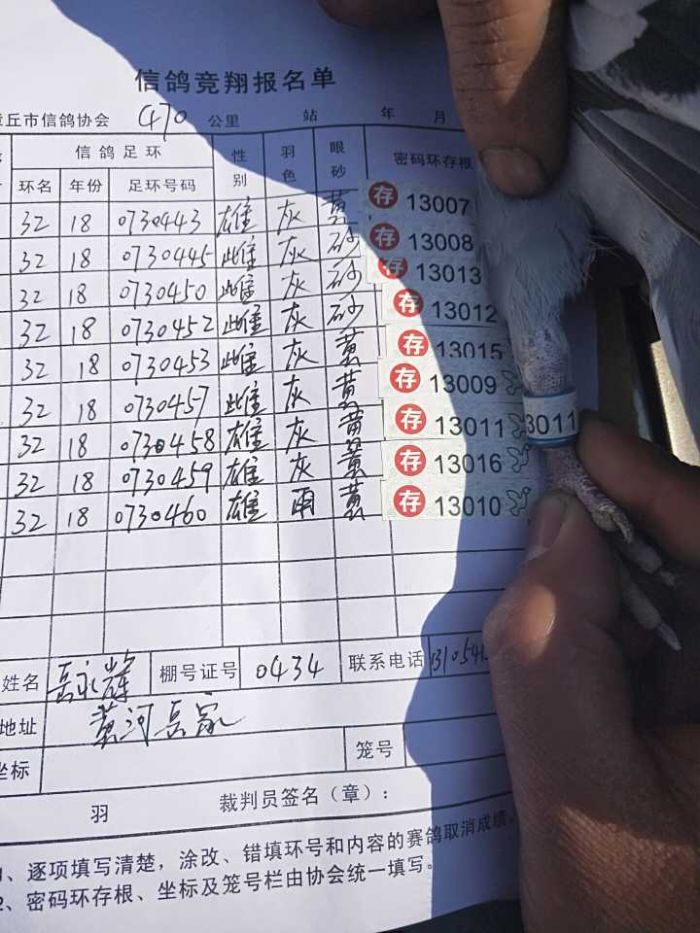 信鸽竞翔报名单
丘市信鸽协会 470 公里 站 年 月
信鸽足环 性别 羽色 眼砂 密码环存根
环名 年份 足环号码
32 18 0730443 雄 灰 黄 存 13007
32 18 0730445 雌 灰 砂 存 13008
32 18 0730450 雌 灰 砂 存 13013
32 18 0730452 雌 灰 砂 存 13012
32 18 0730453 雌 灰 黄 存 13015
32 18 0730457 雌 灰 黄 存 13009
32 18 0730458 雄 灰 黄 存 13011 3011
32 18 0730459 雄 灰 黄 存 13016
32 18 0730460 雄 雨 黄 存 13010
姓名 岳永辉 棚号证号 0434 联系电话 131054
地址 黄河岳家
坐标 笼号
羽 裁判员签名（章）：
1、逐项填写清楚，涂改、错填环号和内容的赛鸽取消成绩。
2、密码环存根、坐标及笼号栏由协会统一填写。